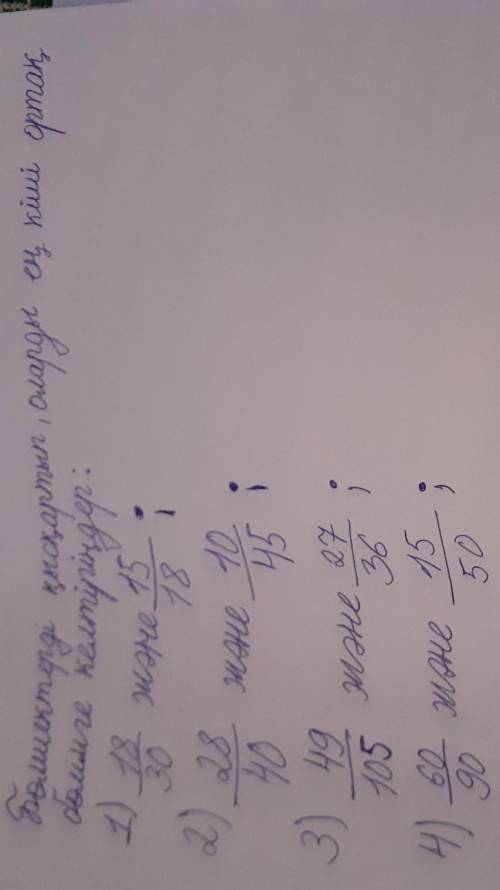 Бөлшектерді қысқартып, оларды ең кіші ортақ
бөлімге келтіріңдер:
1) 18/30 және 15/18 ;
2) 28/40 және 10/45 ;
3) 49/105 және 27/36 ;
4) 60/90 және 15/50 ;